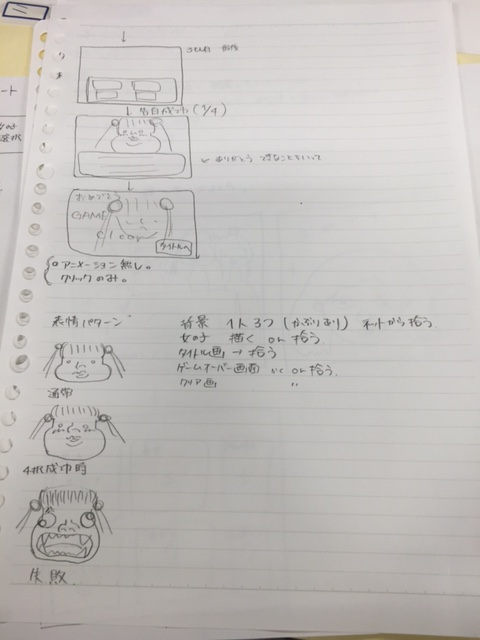 告白成功 (1/4)
ありがとう
おめでとう
GAME
Clear
タイトルへ
○アニメーション無し。
クリックのみ。
表情パターン
背景 1人3つ (かぶりあり) ネットから拾う
女の子 描く or 拾う
タイトル画 → 拾う
ゲームオーバー画面 or 拾う
クリア画 〃
通常
4択成功時
失敗
ート
選択